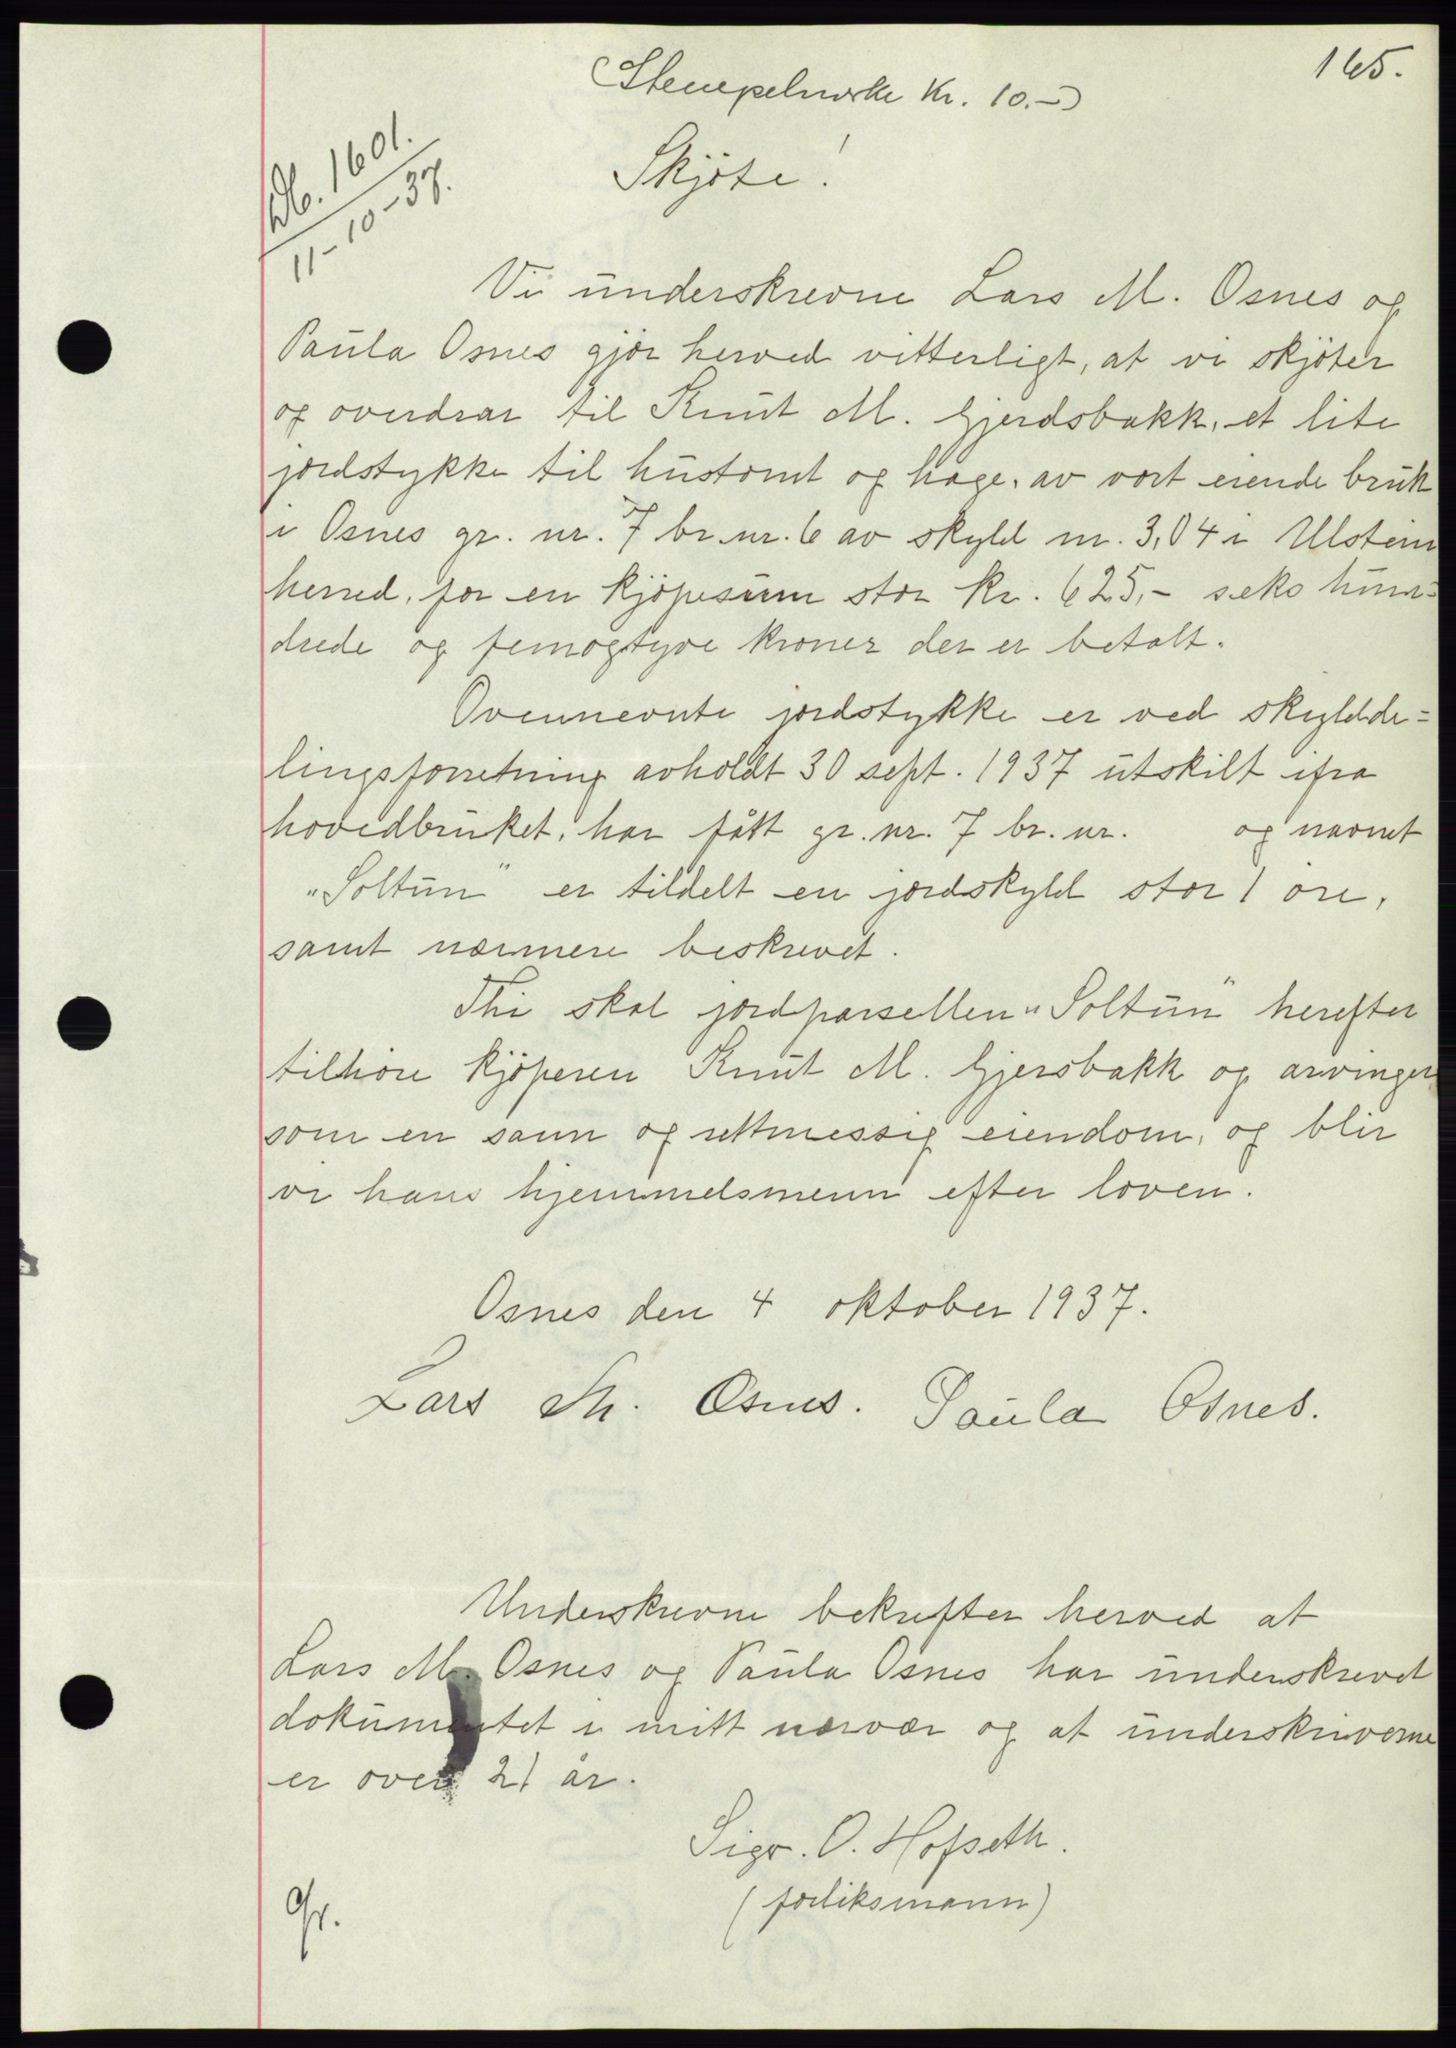 165.
(Stempelmerke Kr. 10.-)
Skjöte!
Db. 1601.
11-10-37.
Vi underskrevne Lars M. Osnes og
Paula Osnes gjör herved vitterligt, at vi skjöter
og overdrar til Knut M. Gjerdsbakk, et lite
jordstykke til hustomt og hage, av vort eiende bruk
i Osnes gr. nr. 7 br. nr. 6 av skyld m. 3,04 i Ulstein
herred, for en kjöpesum stor kr. 625,- seks hun=
drede og femogtyve kroner der er betalt.
Ovennevnte jordstykke er ved skyldde=
lingsforretning avholdt 30 sept. 1937 utskilt ifra
hovedbruket, har fått gr. nr. 7 br. nr. og navnet
"Soltun" er tildelt en jordskyld stor 1 öre,
samt nærmere beskrevet.
Thi skal jordparsellen "Soltun" herefter
tilhöre kjöperen Knut M. Gjersbakk og arvinger
som en sann og rettmessig eiendom, og blir
vi hans hjemmelsmenn efter loven.
Osnes den 4 oktober 1937.
Lars M. Osnes. Paula Osnes.
Underskrevne bekrefter herved at
Lars M. Osnes og Paula Osnes har underskrevet
dokumentet i mitt nærvær og at underskriverne
er over 21 år.
Sigv. O. Hofseth.
(forliksmann)